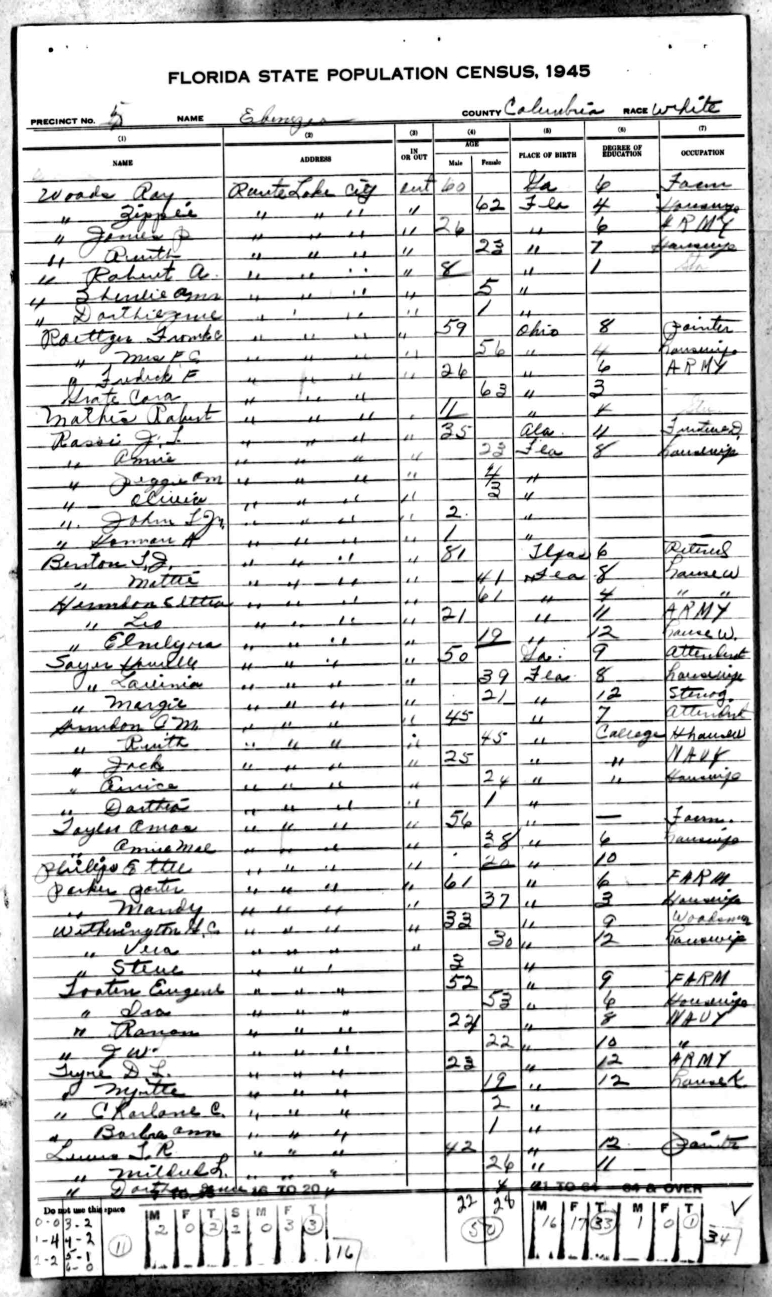 FLORIDA STATE POPULATION CENSUS, 1945
PRECINCT NO. 5 NAME Ebenezer COUNTY Columbia RACE White
(1) (2) (3) (4) (5) (6) (7)
NAME ADDRESS IN OR OUT AGE Male Female PLACE OF BIRTH DEGREE OF EDUCATION OCCUPATION
Woods Ray Route Lake City out 60 Ga 6 Farm
" Zippie " " " " 62 Fla 4 Housewife
" James P " " " " 26 " 6 ARMY
" Ruith " " " " 23 " 7 Housewife
" Robert A. " " " " 8 " 1
" Ann " " " " 5 "
" " " " " 1 "
Roettger Frank C " " " " 59 Ohio 8 Painter
" Mrs F C " " " " 56 " 4 housewife
" Fredick F " " " " 26 " 6 ARMY
Cora " " " " 63 " 3
Mathis Robert " " " " 11 " 4
J. L. " " " " 35 Ala. 4
" Annie " " " " 23 Fla 8 housewife
" Peggie " " " " 4 "
" Olivia " " " " 3 "
" John L Jr. " " " " 2 "
" A " " " " 1 "
Benton T. J. " " " " 81 6 Retired
" Mattie " " " " 41 Fla 8 house W
Herndon " " " " 61 " 4 " "
" Leo " " " " 21 " 11 ARMY
" " " " " 19 " 12 house W.
" " " " 50 Ga. 9 Attendent
" Lavinia " " " " 39 Fla 8 housewife
" Margie " " " " 21 " 12 Stenog.
Herndon C M. " " " " 45 " 7 Attendent
" Ruith " " " " 45 " College
" Jack " " " " 25 " " NAVY
" " " " " 24 " " Housewife
" " " " " 1 "
Taylor Amos " " " " 56 " — Farm.
" Annie Mae " " " " 38 " 6 housewife
Philips Ettie " " " " 20 " 10
Parker Porter " " " " 61 " 6 FARM
" Mandy " " " " 37 " 3 Housewife
Witherington H. C. " " " " 33 " 9 Woodsman
" Vera " " " " 30 " 12 housewife
" Steve " " 3 "
Eugene " " " 52 " 9 FARM
" Ira " " " 53 " 6 Housewife
" " " " 22 " 8 NAVY
" J W. " " " 22 " 10 "
Tyre D L. " " " 23 " 12 ARMY
" Myrtle " " " 19 " 12 house K
" Charlane C. " " " 2 "
" Barbra Ann " " " 1 "
Lewis T. R " " " 42 " 12 Painter
" Mildred L. " " " 26 " 11
" " " " 4 "
16 TO 20 21 TO 64 64 & OVER
Do not use this space
0-0 3-2
1-4 4-2
2-2 5-1
6-0
11
M F T S M F T
2 0 2 1 0 3 3
16
22 28
50
M F T M F T
16 17 33 1 0 1
34